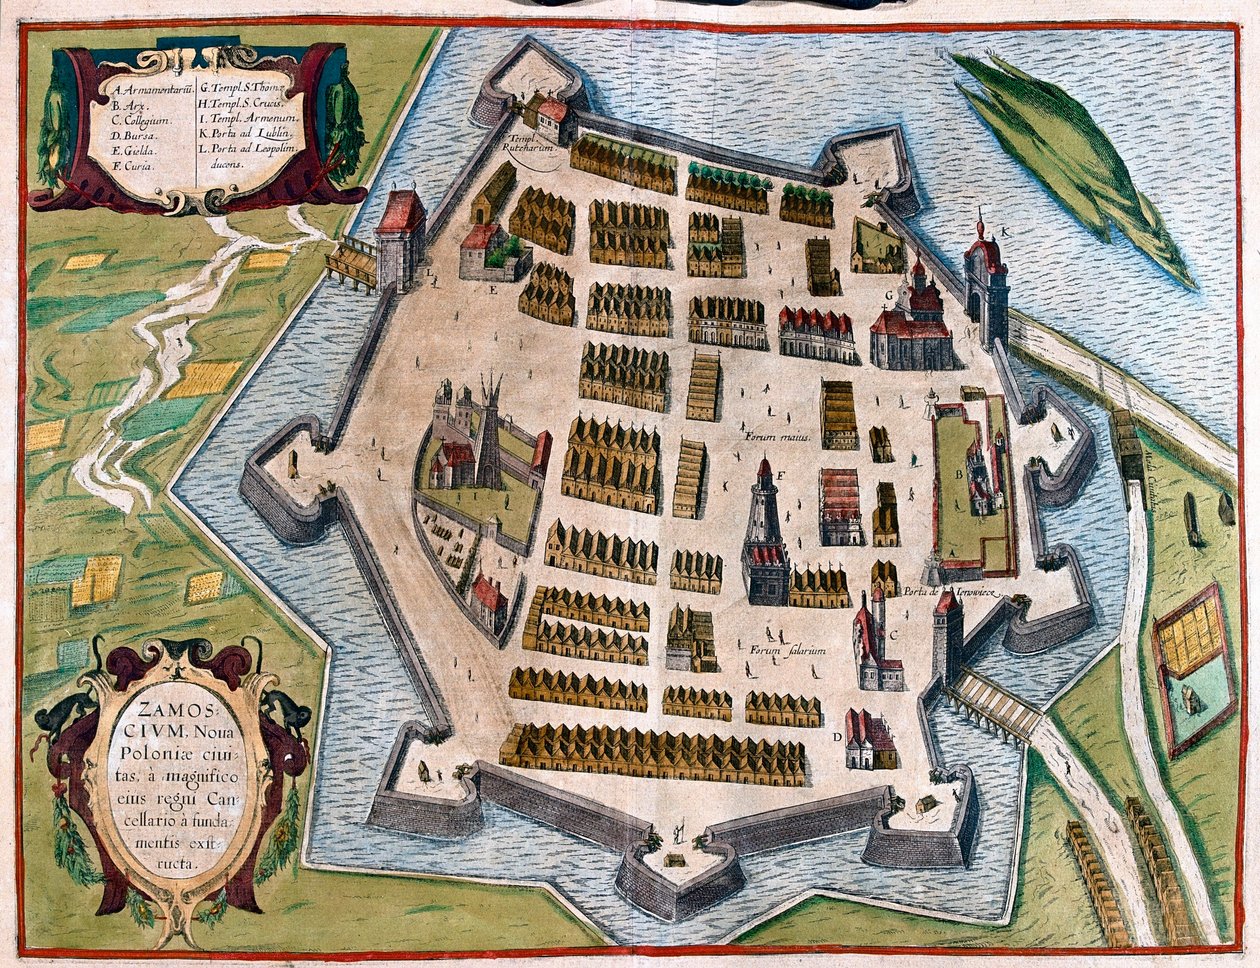 A. Armamentariũ.
B. Arx.
C. Collegium.
D. Bursa.
E. Gielda.
F. Curia.
G. Templ. S. Thomę
H. Templ. S. Crucis.
I. Templ. Armenum.
K. Porta ad Lublin.
L. Porta ad Leopolin.
ducens.
Templ.
Ruteharum.
K
L
E
G
Forum maius.
F
B
A
Porta de
C
Forum salarium
D
ZAMOS:
CIVM, Noua
Poloniæ ciui:
tas, à magnifico
eius regni Can:
cellario à funda:
mentis exst:
ructa.